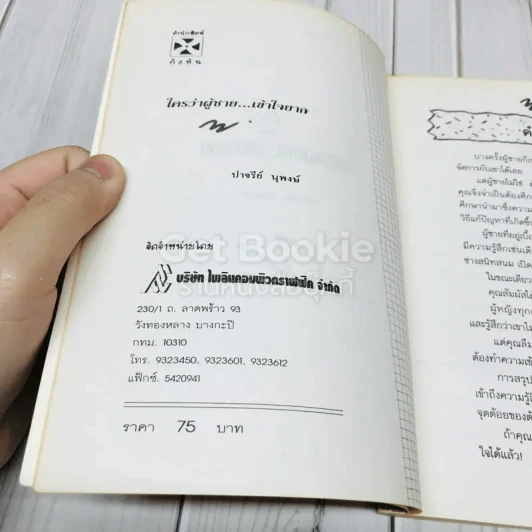 สำนักพิมพ์
กังหัน
ใครว่าผู้ชาย...เข้าใจยาก
ปาจรีย์ นุพงษ์
จัดจำหน่ายโดย
Get Bookie
บริษัท ไพลินคอมพิวกราฟฟิค จำกัด
230/1 ถ. ลาดพร้าว 93
วังทองหลาง บางกะปิ
กทม. 10310
โทร. 9323450, 9323601, 9323612
แฟ็กซ์. 5420941
ราคา 75 บาท
บางครั้งผู้ชายก็
จัดการกับเขาได้เลย
แต่ผู้ชายไม่ใช่
คุณจึงจำเป็นต้องศึก
ศึกษานำมาซึ่งความ
วิธีแก้ปัญหาที่เกิดขึ้
ผู้ชายที่อยู่เบื้อ
มีความรู้สึกเช่นเดีย
ช่างสนิทสนม เปิด
ในขณะเดียว
คุณสัมผัสได้
ผู้หญิงทุก
และรู้สึกว่าเขาไม่
แต่คุณลืม
ต้องทำความเข้
การสรุป
เข้าถึงความรู้สึ
จุดด้อยของตั
ถ้าคุณ
ใจได้แล้ว!